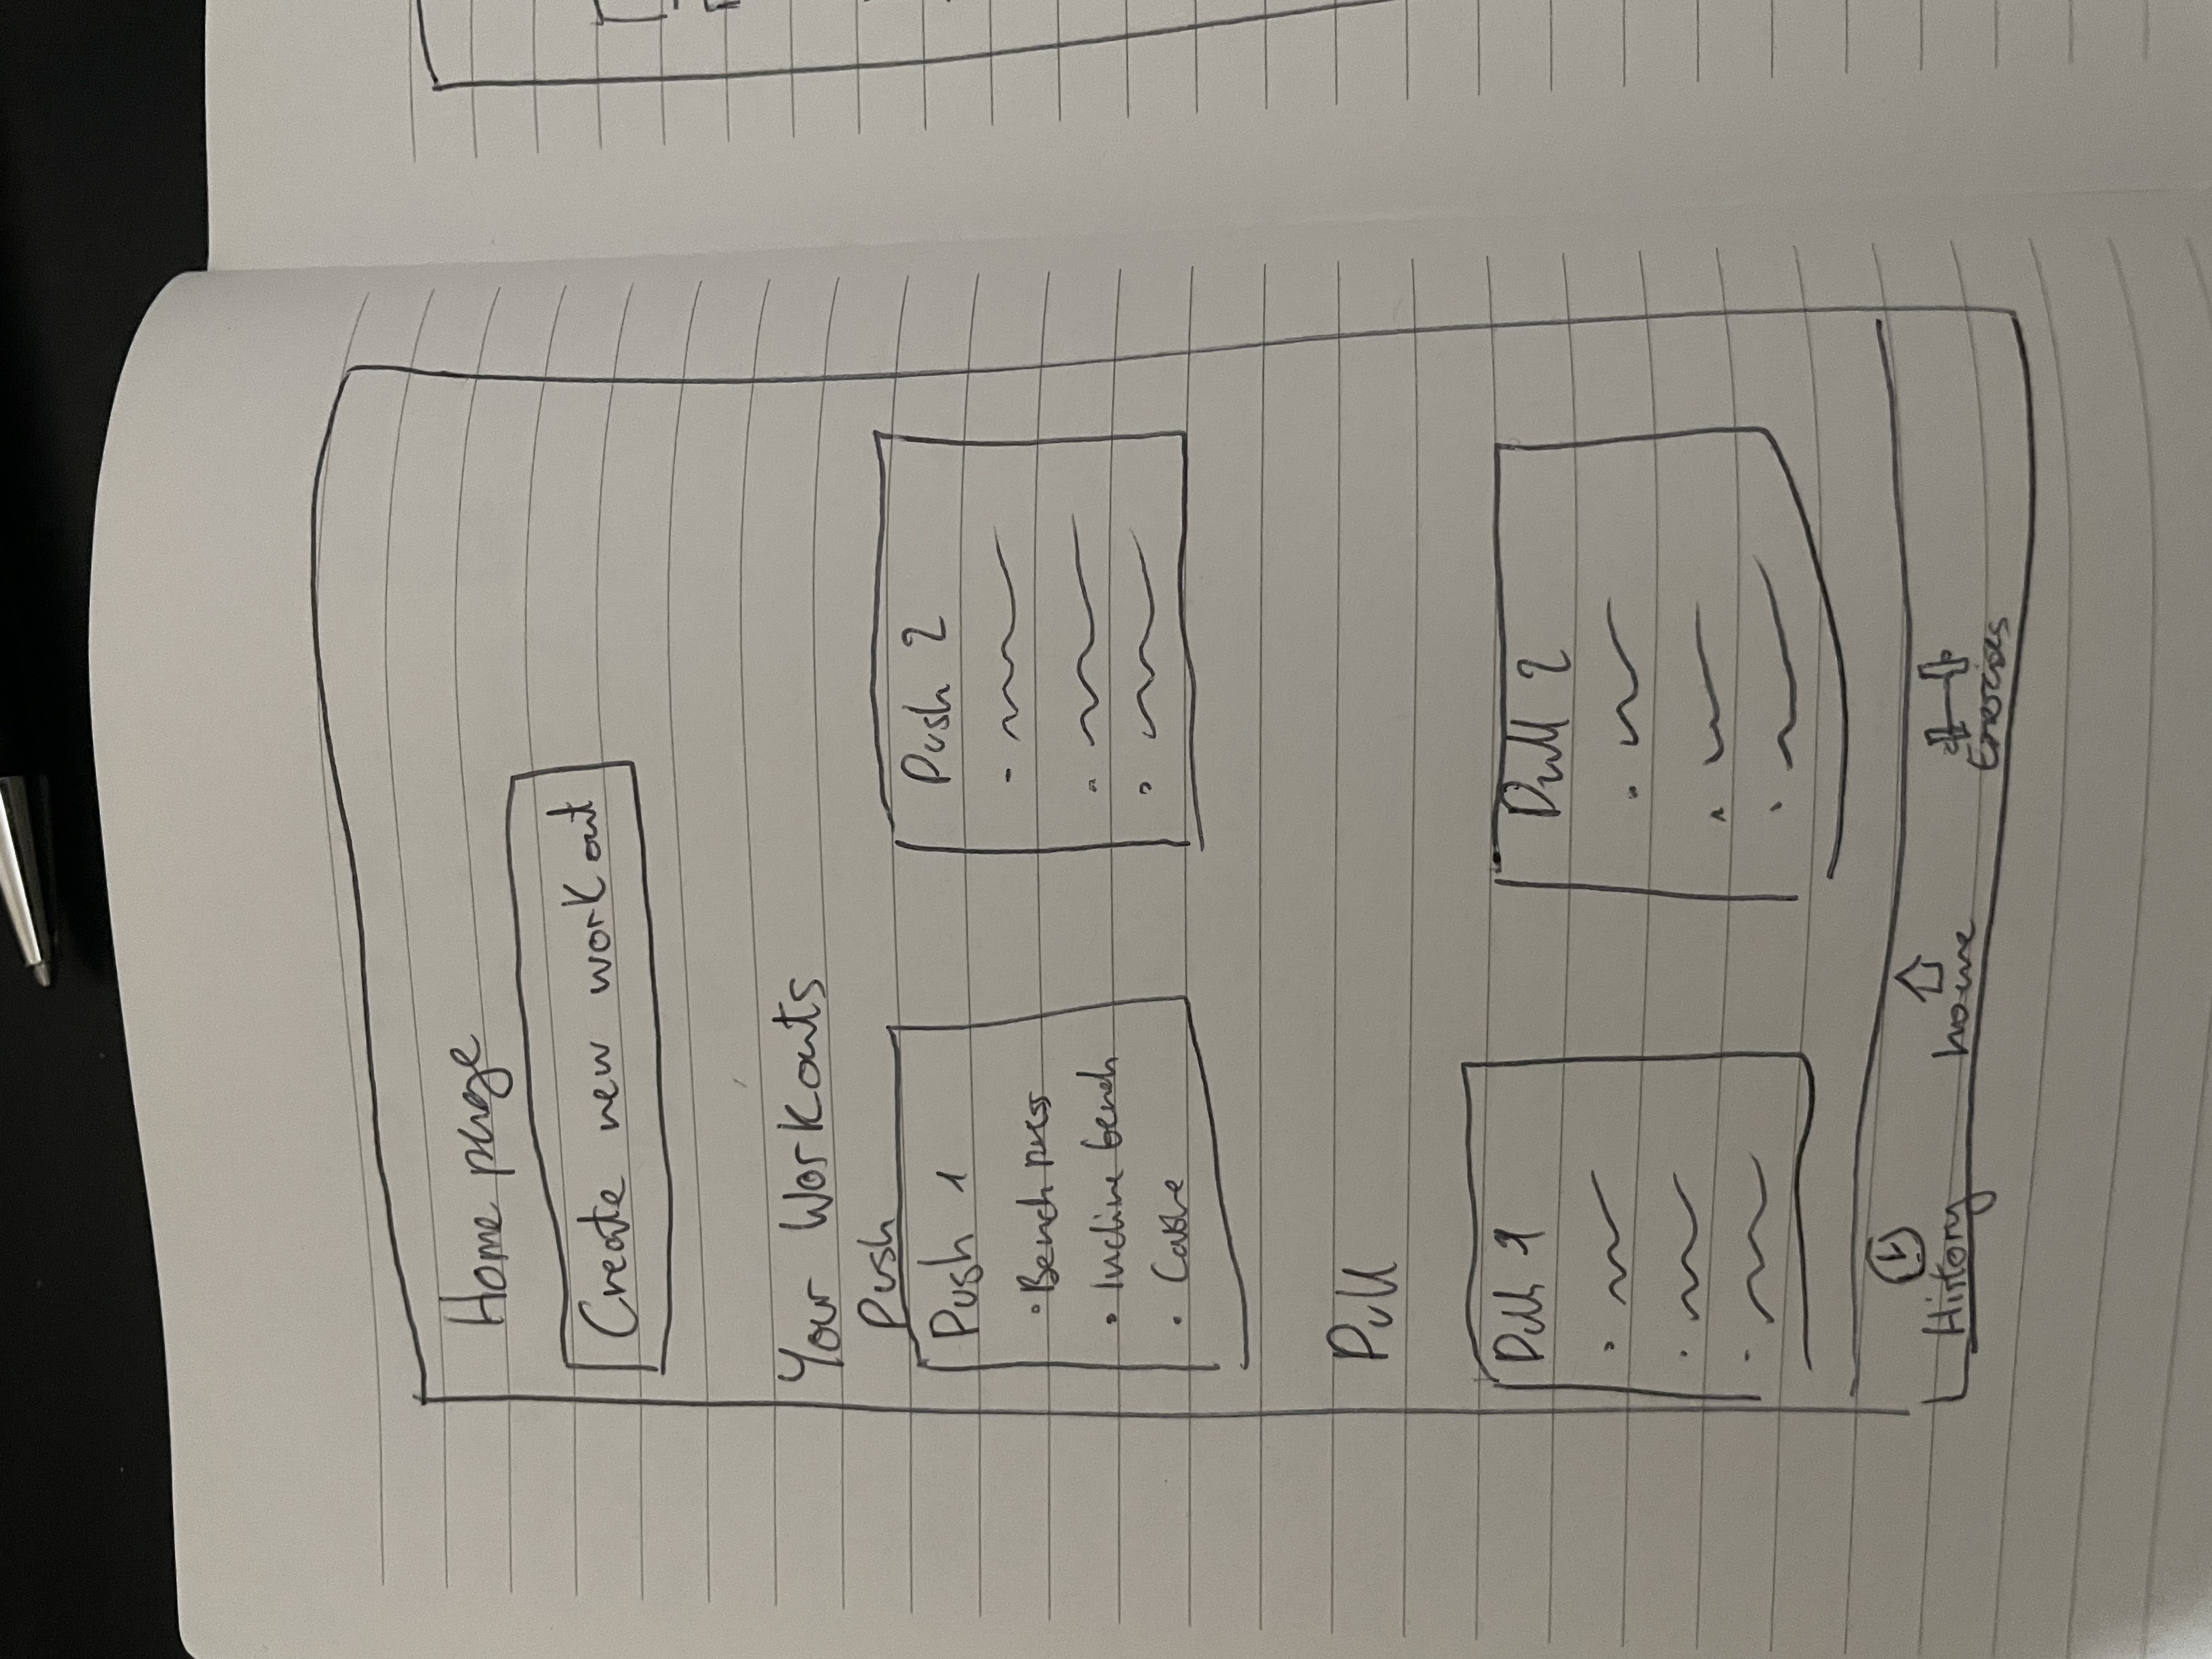 Home page
Create new workout
Your Workouts
Push
Push 1
• Bench press
• Incline bench
•
Push 2
Pull
Pull 1
Pull 2
History
home
Exercises